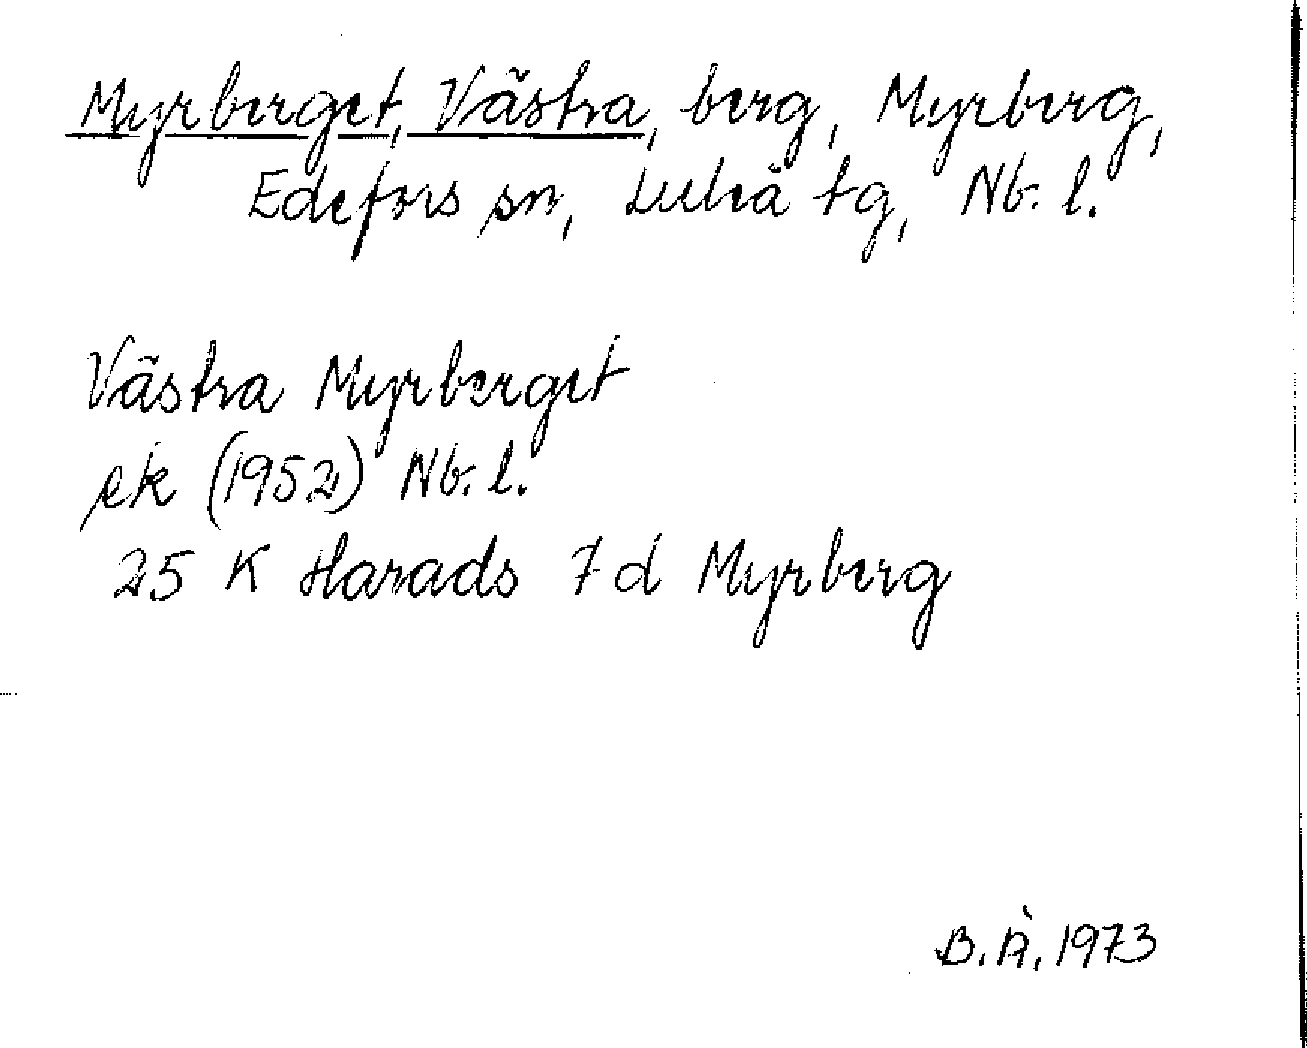 Myrberget, Västra, berg, Myrberg,
Edefors sn, Luleå tg, Nb. l.
Västra Myrberget
ek (1952) Nb. l.
25 K Harads 7 d Myrberg
B.Å. 1973